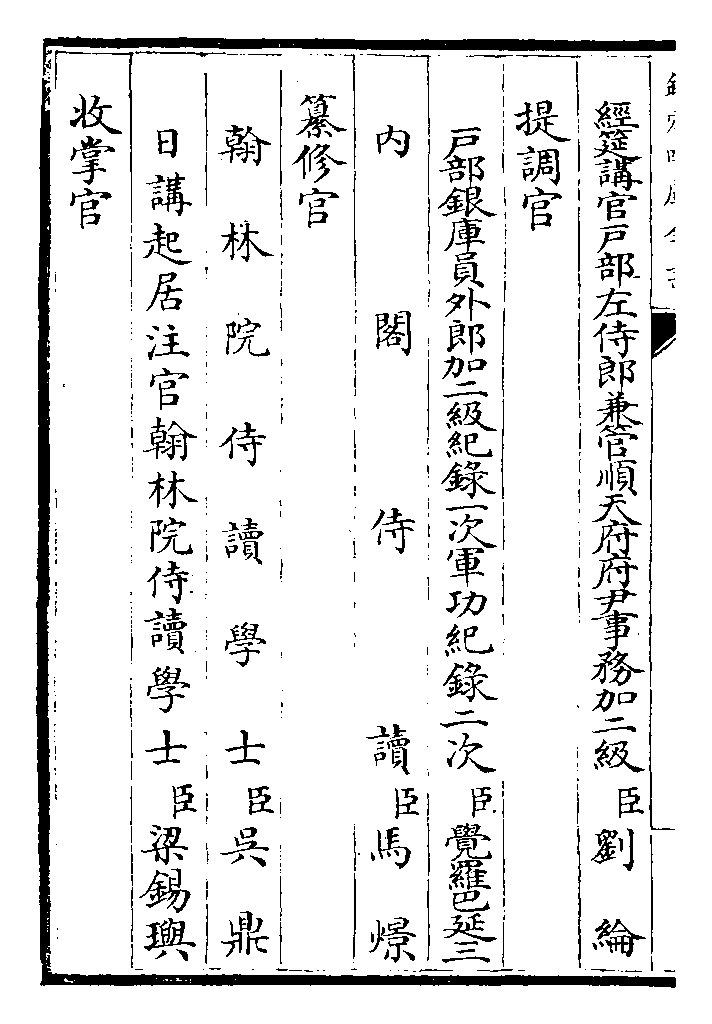 欽定四庫全書
經筵講官戶部左侍郎兼管順天府府尹事務加二級臣劉綸
提調官
戶部銀庫員外郎加二級紀錄一次軍功紀錄二次臣覺羅巴延三
內閣侍讀臣馬憬
纂修官
翰林院侍讀學士臣吳鼎
日講起居注官翰林院侍讀學士臣梁錫璵
收掌官